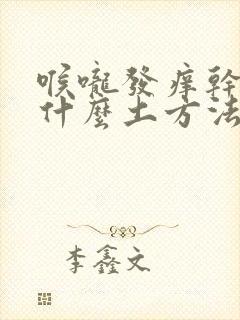 喉嚨發癢幹
什麼土方法
李鑫文